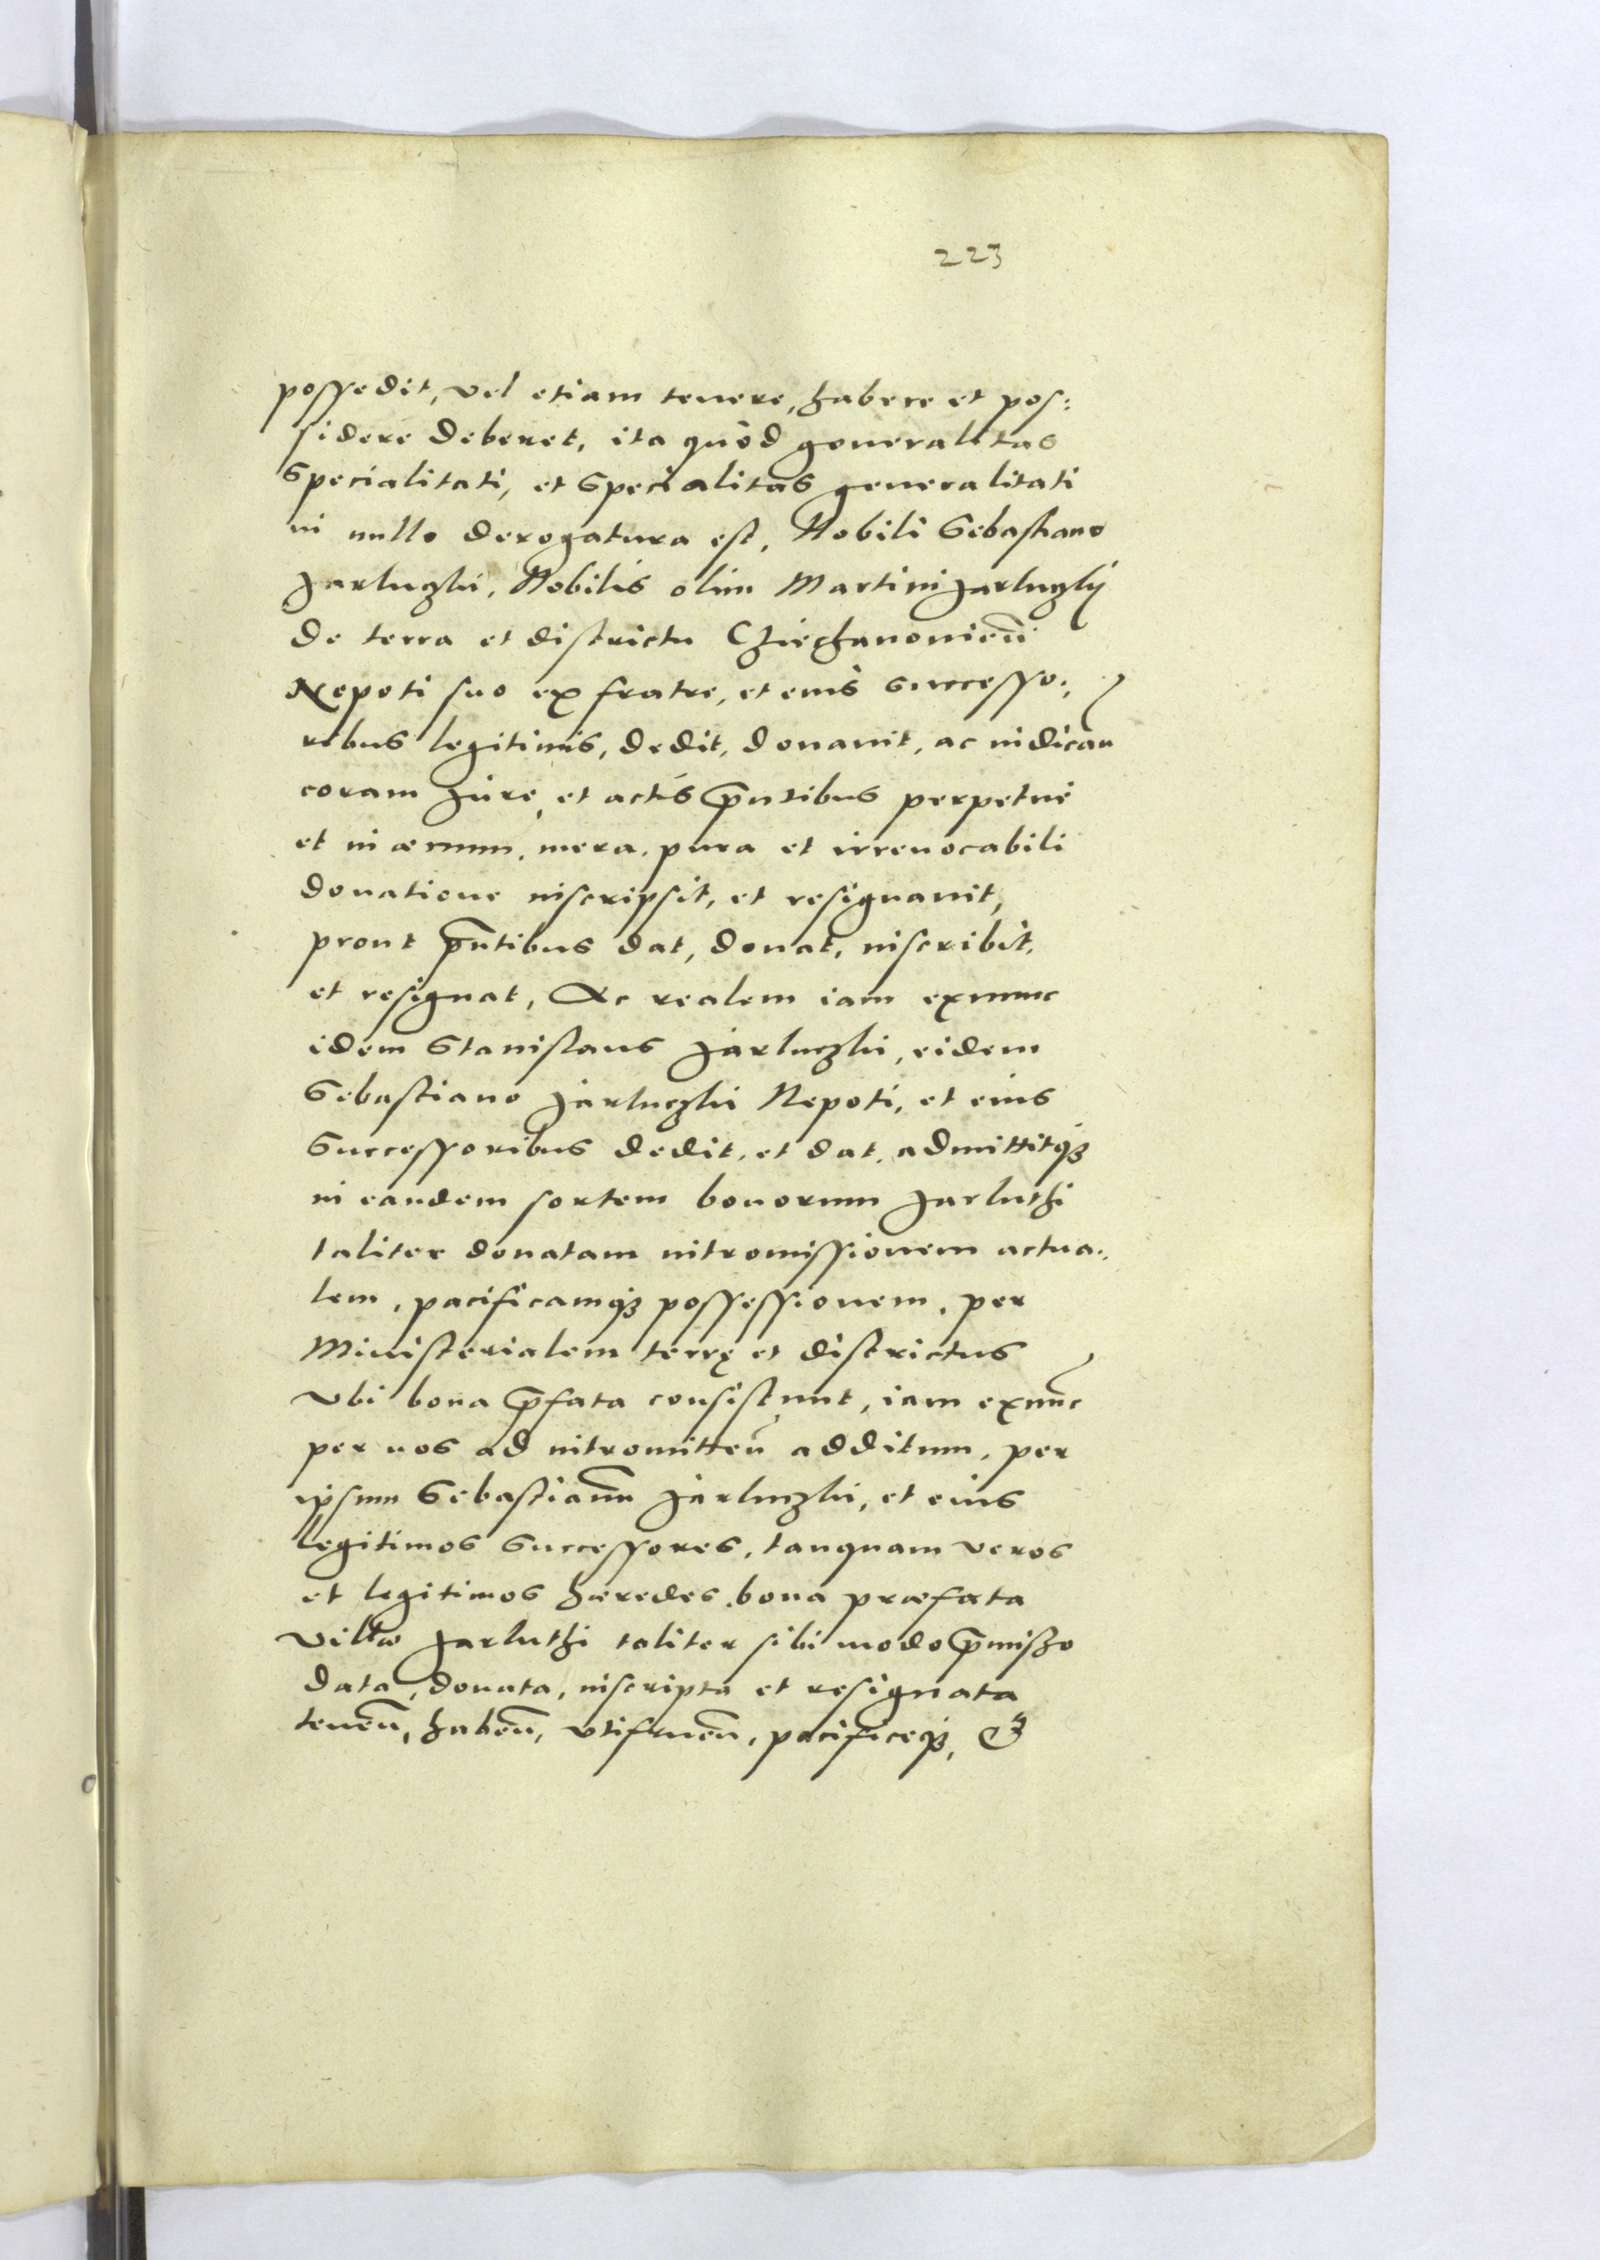 223
possedit, vel etiam tenere, habere et pos:
sidere deberet, ita quòd generalitas
Specialitati, et Specialitas generalitati
in nullo derogatura est, Nobili Sebastiano
Jarluczki, Nobilis olim Martini Jarluczkij
de terra et districtu Cziechanonieñ
Nepoti suo ex fratre, et eius successo:
ribus legitimis, dedit, donauit, ac in dicañ
coram Jure, et actis p̃ntibus perpetue
et in æuum, mera, pura et irreuocabili
donatione inscripsit, et resignauit,
prout p̃ntibus dat, donat, inscribit,
et resignat, Ac realem iam exnunc
idem Stanislaus Jarluczki, eidem
Sebastiano Jarluczki Nepoti, et eius
Successoribus dedit, et dat, admittitqꝫ
in eandem sortem bonorum Jarluthi
taliter donatam intromissionem actua:
lem, pacificamqꝫ possessionem, per
Ministerialem terrę et districtus
vbi bona p̃fata consistunt, iam exnũc
per nos ad intromitteñ additum, per
ipsum Sebastianũ Jarluczki, et eius
legitimos Successores, tanquam veros
et legitimos hæredes, bona præfata
villæ Jarluthi taliter sibi modo p̃misso
data, donata, inscripta et resignata
teneñ, habeñ, vtifrueñ, pacificeqꝫ, &